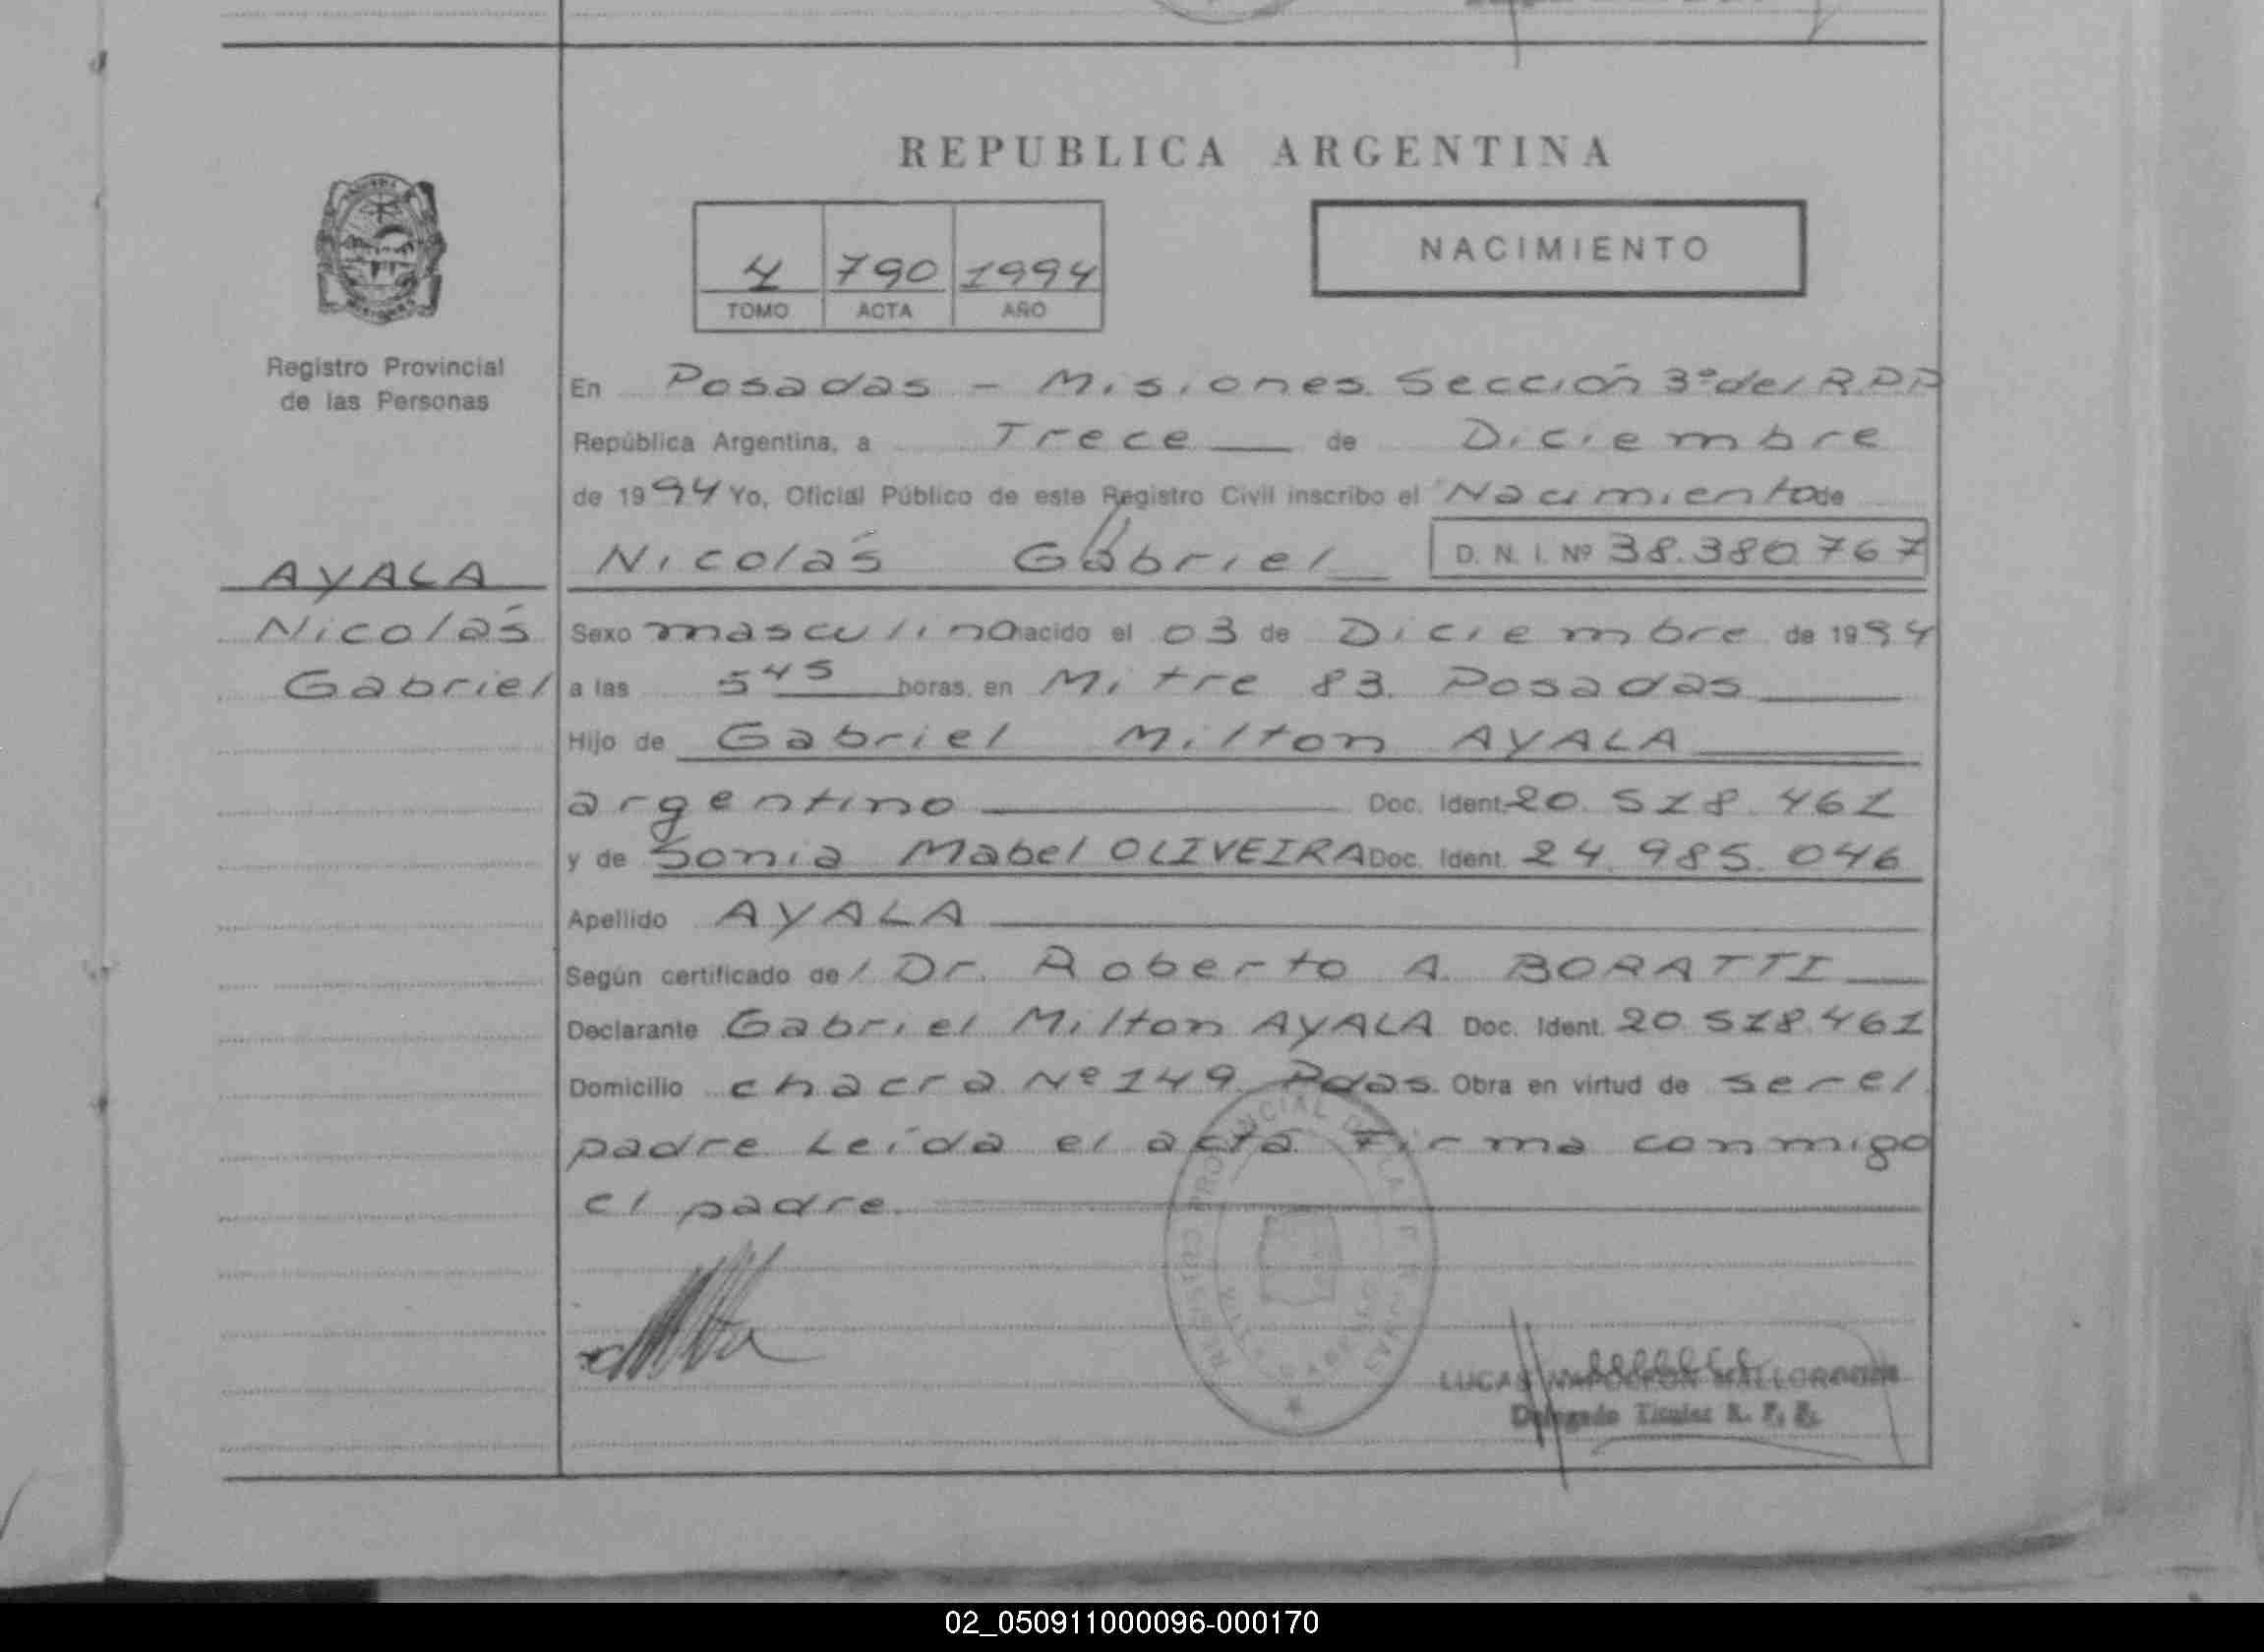 REPUBLICA ARGENTINA
NACIMIENTO
4 790 1994
TOMO ACTA AÑO
Registro Provincial
de las Personas
En Posadas - Misiones. Sección 3º del R.P.P
República Argentina, a Trece de Diciembre
de 1994 Yo, Oficial Público de este Registro Civil inscribo el Nacimiento de
Nicolás Gabriel D. N. I. Nº 38.380.767
AYALA
Nicolás
Gabriel
Sexo masculino nacido el 03 de Diciembre de 1994
a las 5 45 horas, en Mitre 83. Posadas
Hijo de Gabriel Milton AYALA
argentino Doc. Ident. 20.518.461
y de Sonia Mabel OLIVEIRA Doc. Ident. 24.985.046
Apellido AYALA
Según certificado del Dr. Roberto A. BORATTI
Declarante Gabriel Milton AYALA Doc. Ident. 20.518.461
Domicilio chacra Nº 149. Pdas. Obra en virtud de ser el
padre. Leída el acta. Firma conmigo
el padre.
REGISTRO PROVINCIAL DE LAS PERSONAS
LUCAS NAPOLEON
Delegado Titular R. P. P.
02_050911000096-000170